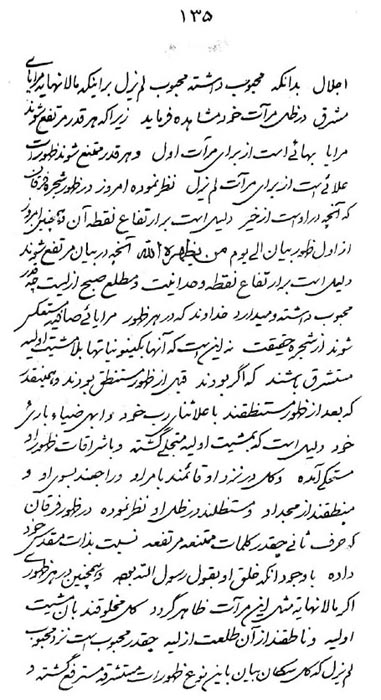 ۱۳۵
اجلال بدانکه محبوب داشته محبوب لم یزل بر اینکه مالانهایه مرایای
مشرق در ظل مرآت خود مشاهده فرماید زیرا که هر قدر مرتفع شوند
مرایا بهائی است از برای مرآت اول و هر قدر ممتنع شوند ظهورات
علائی است از برای مرآت لم یزل نظر نموده امروز در ظهور شجره فرقان
که آنچه در او است از خیر دلیل است بر ارتفاع نقطه آن و همچنین امروز
از اول ظهور بیان الی یوم من یظهره الله آنچه در بیان مرتفع شوند
دلیل است بر ارتفاع نقطه وحدانیت و مطلع صبح ازلیت چقدر
محبوب داشته و میدارد خداوند که در هر ظهور مرایائی صافیه منعکس
شوند از شجره حقیقت نه این است که آنها بکینونیاتها بلا مشیت اولیه
مستشرق باشند که اگر بودند قبل از ظهور مستنطق بودند و همینقدر
که بعد از ظهور مستنطقند باعلاء ثناء رب خود و ابهی ضیاء بارئ
خود دلیل است که بمشیت اولیه متجلی گشته و باشراقات ظهور او
مستحکی آمده و کل در نزد او قائمند بامر او و راجعند بسوی او و
منطقند از مجد او و مستظلند در ظل او نظر نموده در ظهور فرقان
که حرف ثانی چقدر کلمات ممتنعه مرتفعه نسبت بذات مقدس خود
داده باوجود آنکه خلق او بقول رسول الله بوده و همچنین در هر ظهوری
اگر مالانهایه مثل این مرآت ظاهر گردد کل مخلوقند بآن مشیت
اولیه و ناطقند از آن طلعت ازلیه چقدر محبوب است نزد محبوب
لم یزل که کل سکان بیان باین نوع ظهورات مستشرقه مرتفع گشته و